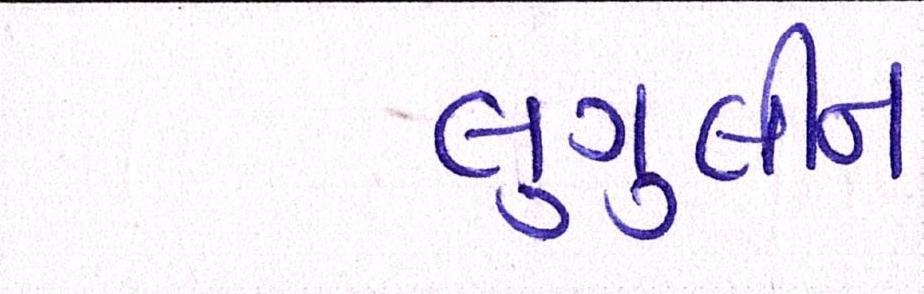 લુગુલીન